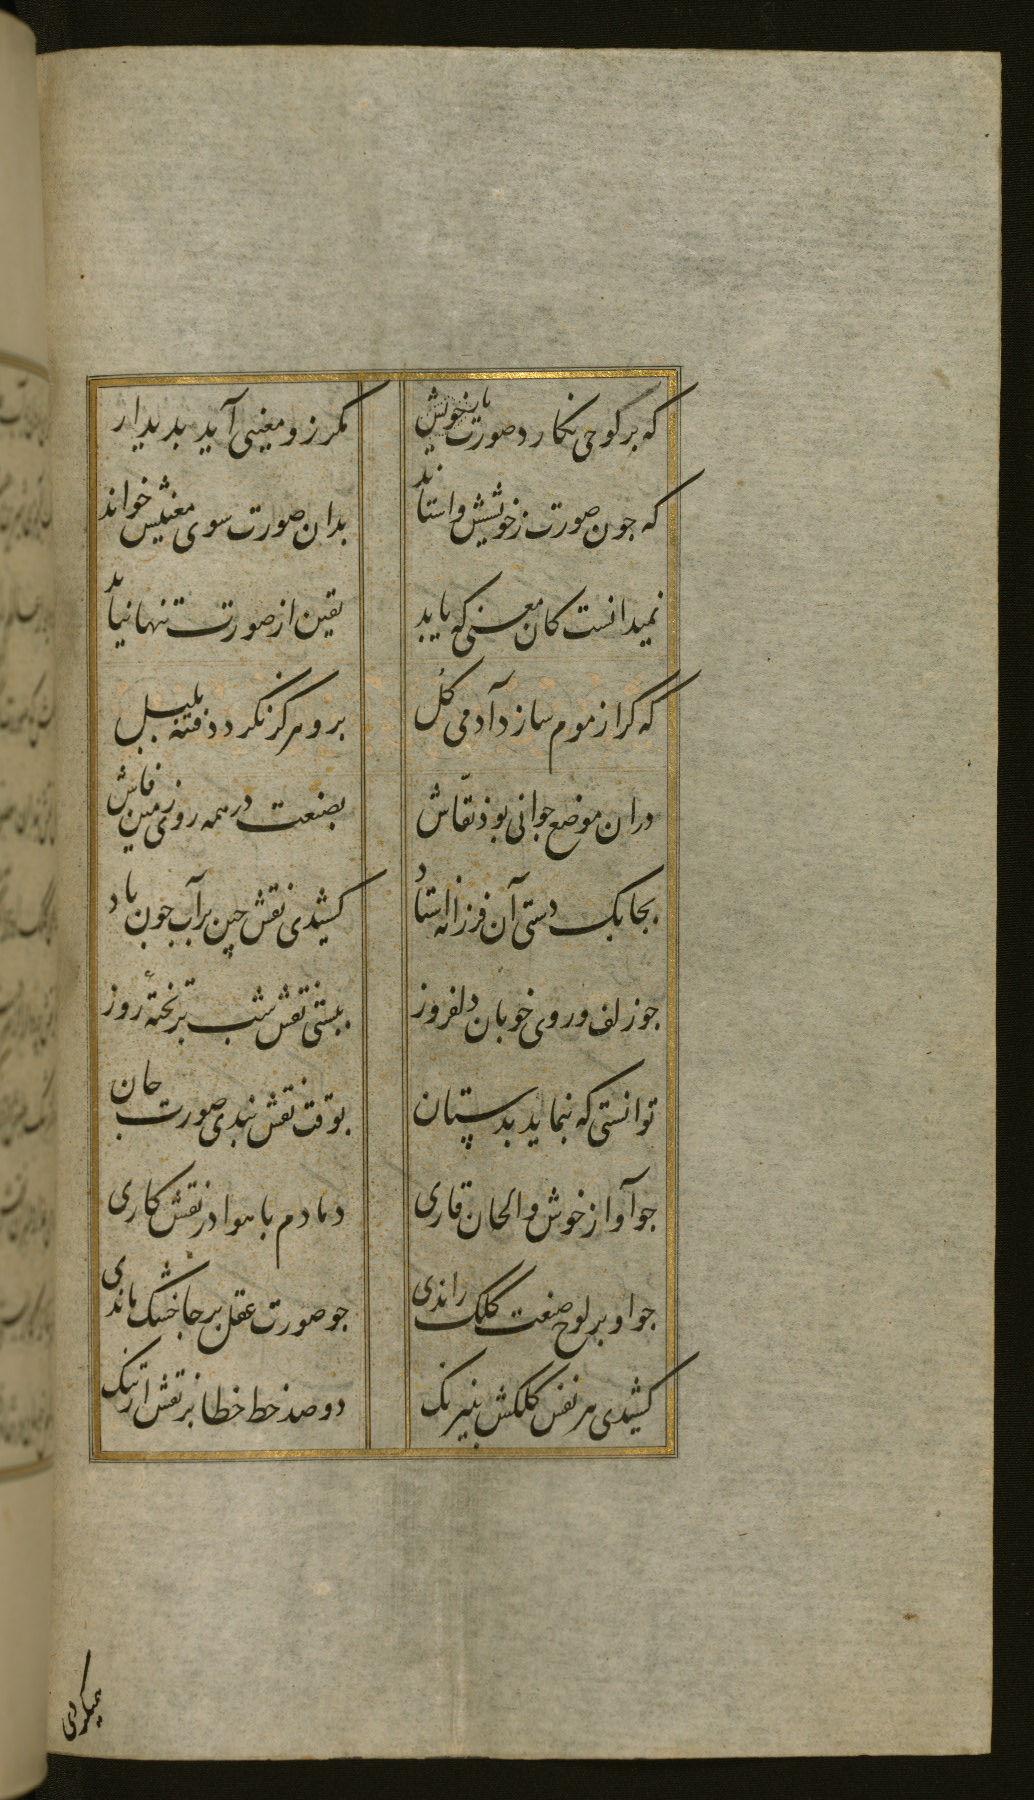 که برکوحی نکارد صورت خویش مکرز و معینی آید بدیدار
که جون صورت زخویشش واستاند بدان صورت سوی معنیش خواند
نمیدانست کان معنی که باید یقین از صورت تنها نیاید
که کر از موم سازد آدمی کل برو هرکز نکردد فتنه بلبل
دران موضع جوانی بوذ نقّاش بصنعت در همه روی زمین فاش
بجابک دستی آن فرزانه استاد کشیدی نقش جین بر آب جون باد
جو زلف و روی خوبان دلفروز ببستی نقش شب بر تختهٔ روز
توانستی که بنماید بدستان بوقت نقش بندی صورت جان
جو آواز خوش و الحان قاری دمادم با هوا در نقش کاری
جو او بر لوح صنعت کلک راندی جو صورت عقل برجا خشک ماندی
کشیدی هر نفس کلکش بنیرنک دو صذ خط خطا بر نقش ارتنک
همیکردی